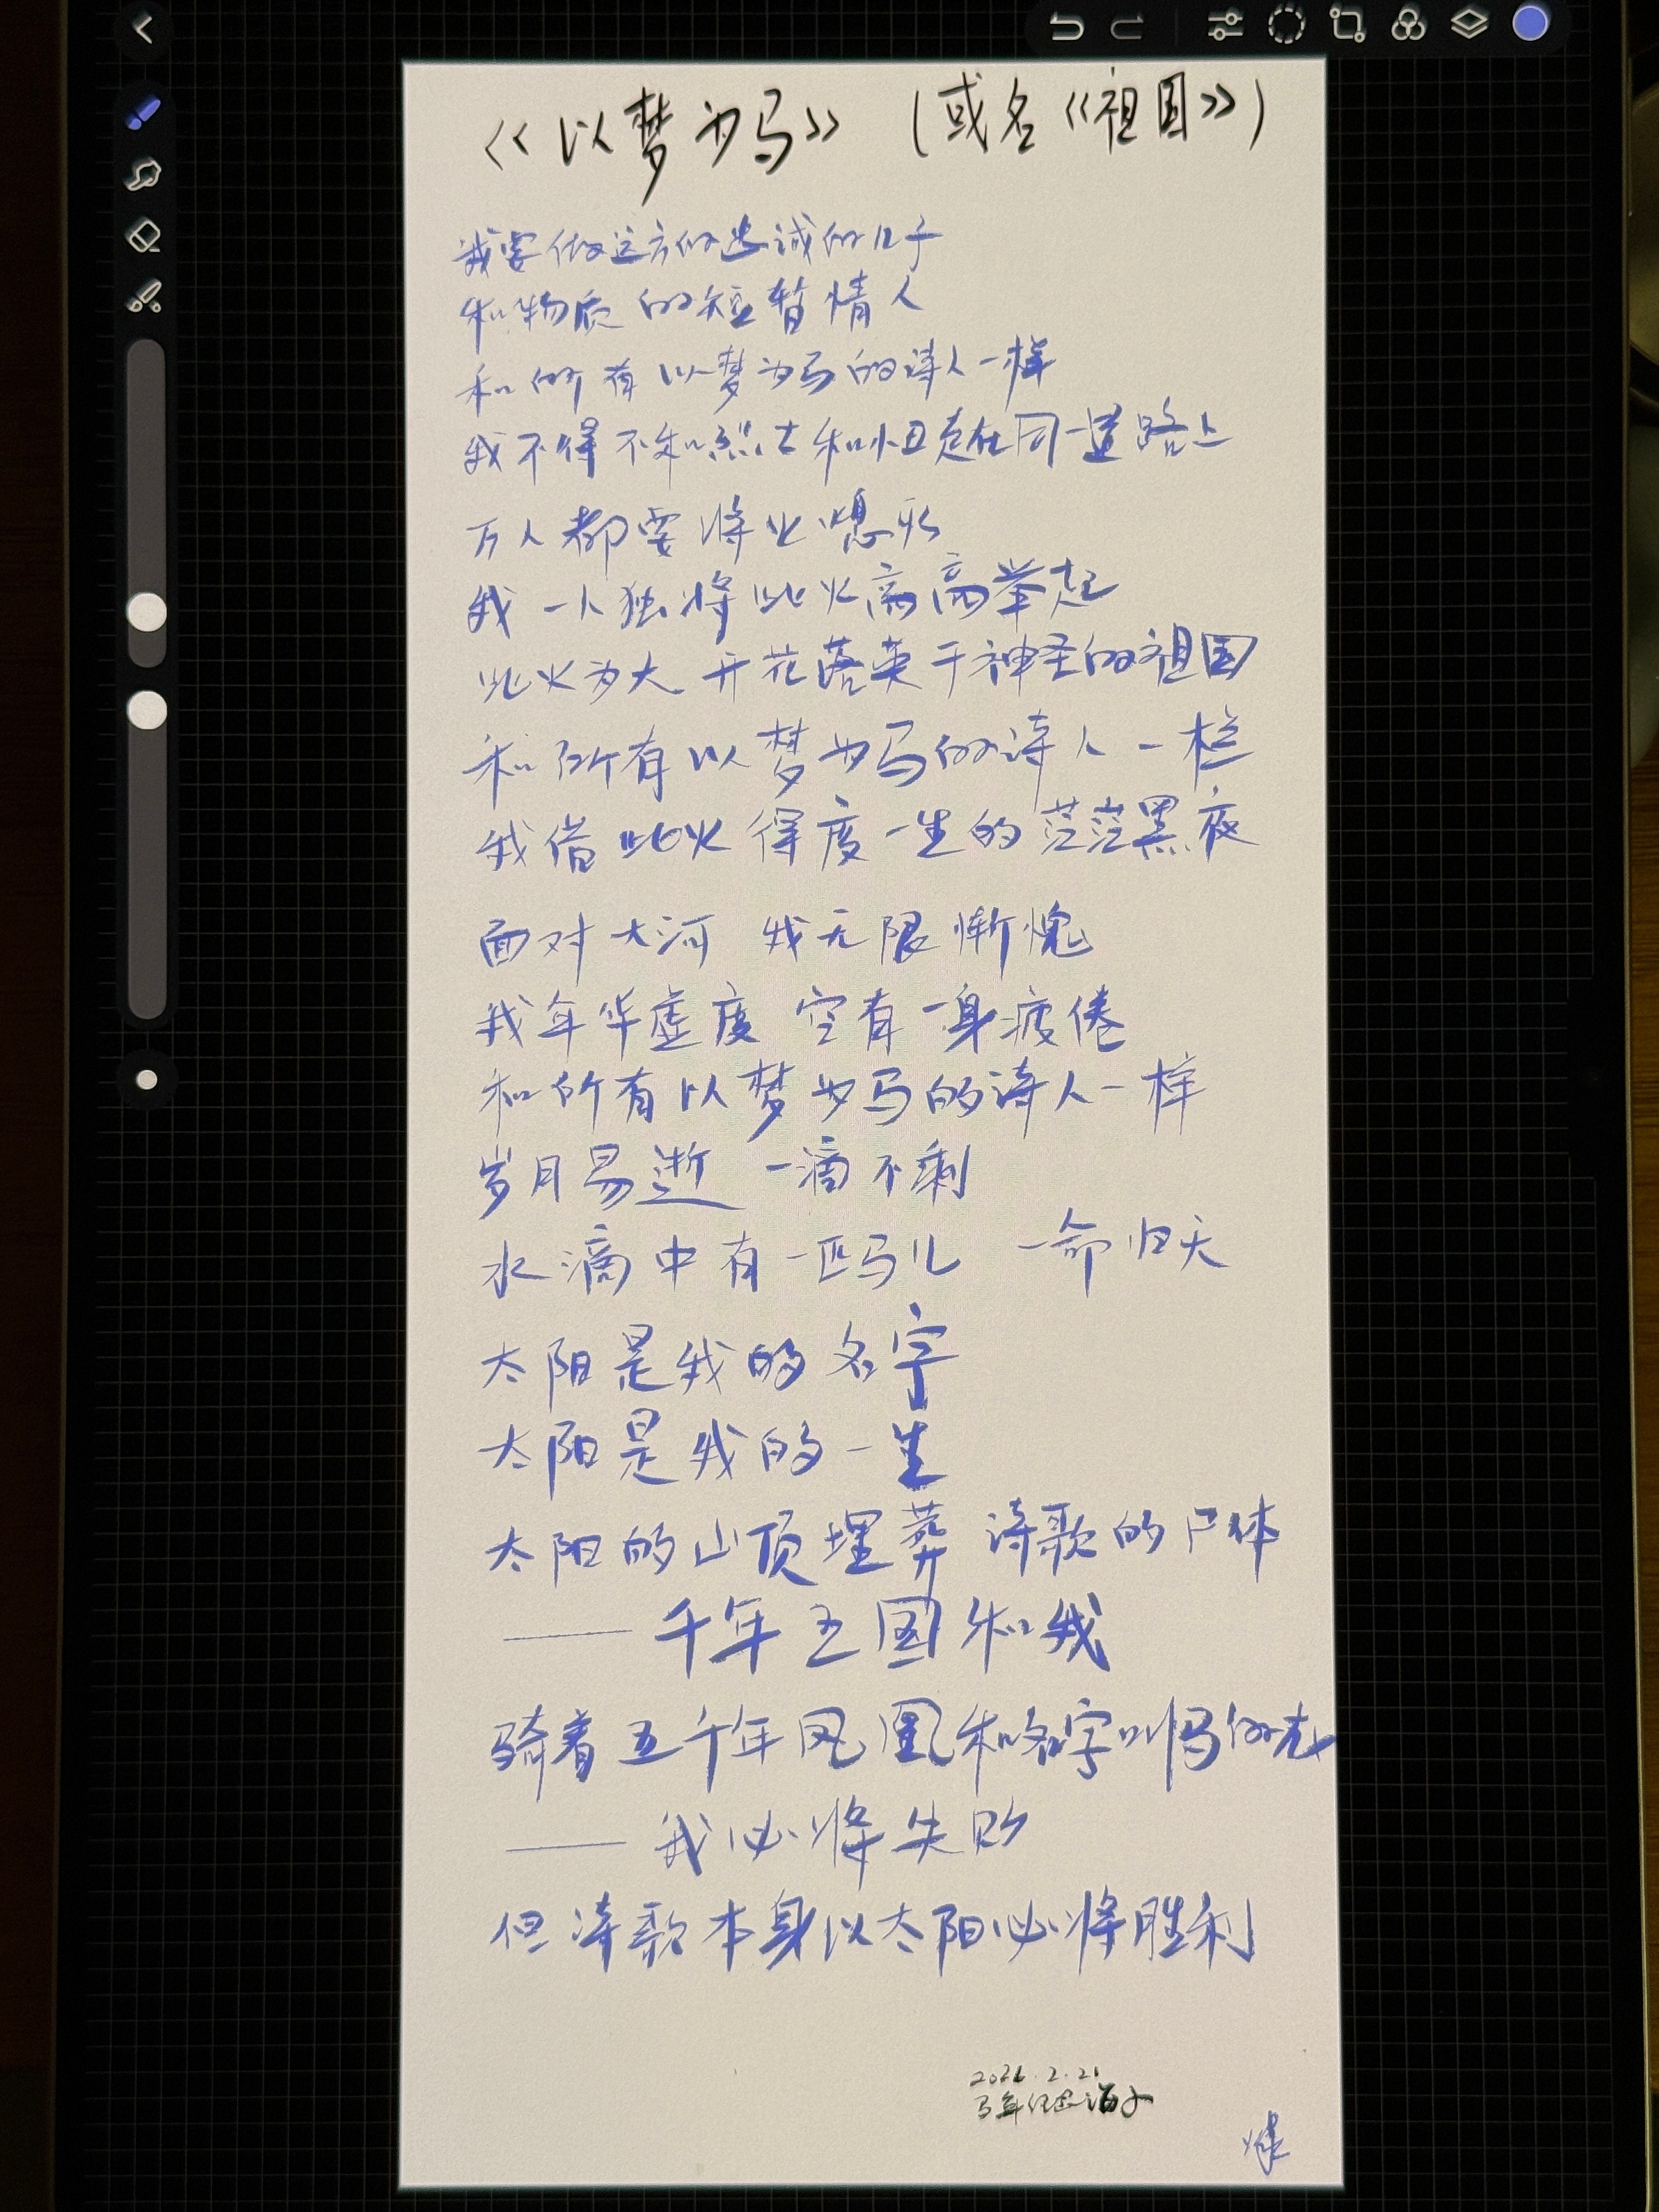 《以梦为马》（或名《祖国》）
我要做远方的忠诚的儿子
和物质的短暂情人
和所有以梦为马的诗人一样
我不得不和烈士和小丑走在同一道路上
万人都要将火熄灭
我一人独将此火高高举起
此火为大 开花落英于神圣的祖国
和所有以梦为马的诗人一样
我借此火得度一生的茫茫黑夜
面对大河 我无限惭愧
我年华虚度 空有一身疲倦
和所有以梦为马的诗人一样
岁月易逝 一滴不剩
水滴中有一匹马儿 一命归天
太阳是我的名字
太阳是我的一生
太阳的山顶埋葬 诗歌的尸体
——千年王国和我
骑着五千年凤凰和名字叫马的龙
——我必将失败
但诗歌本身以太阳必将胜利
2026.2.21
马年纪念海子